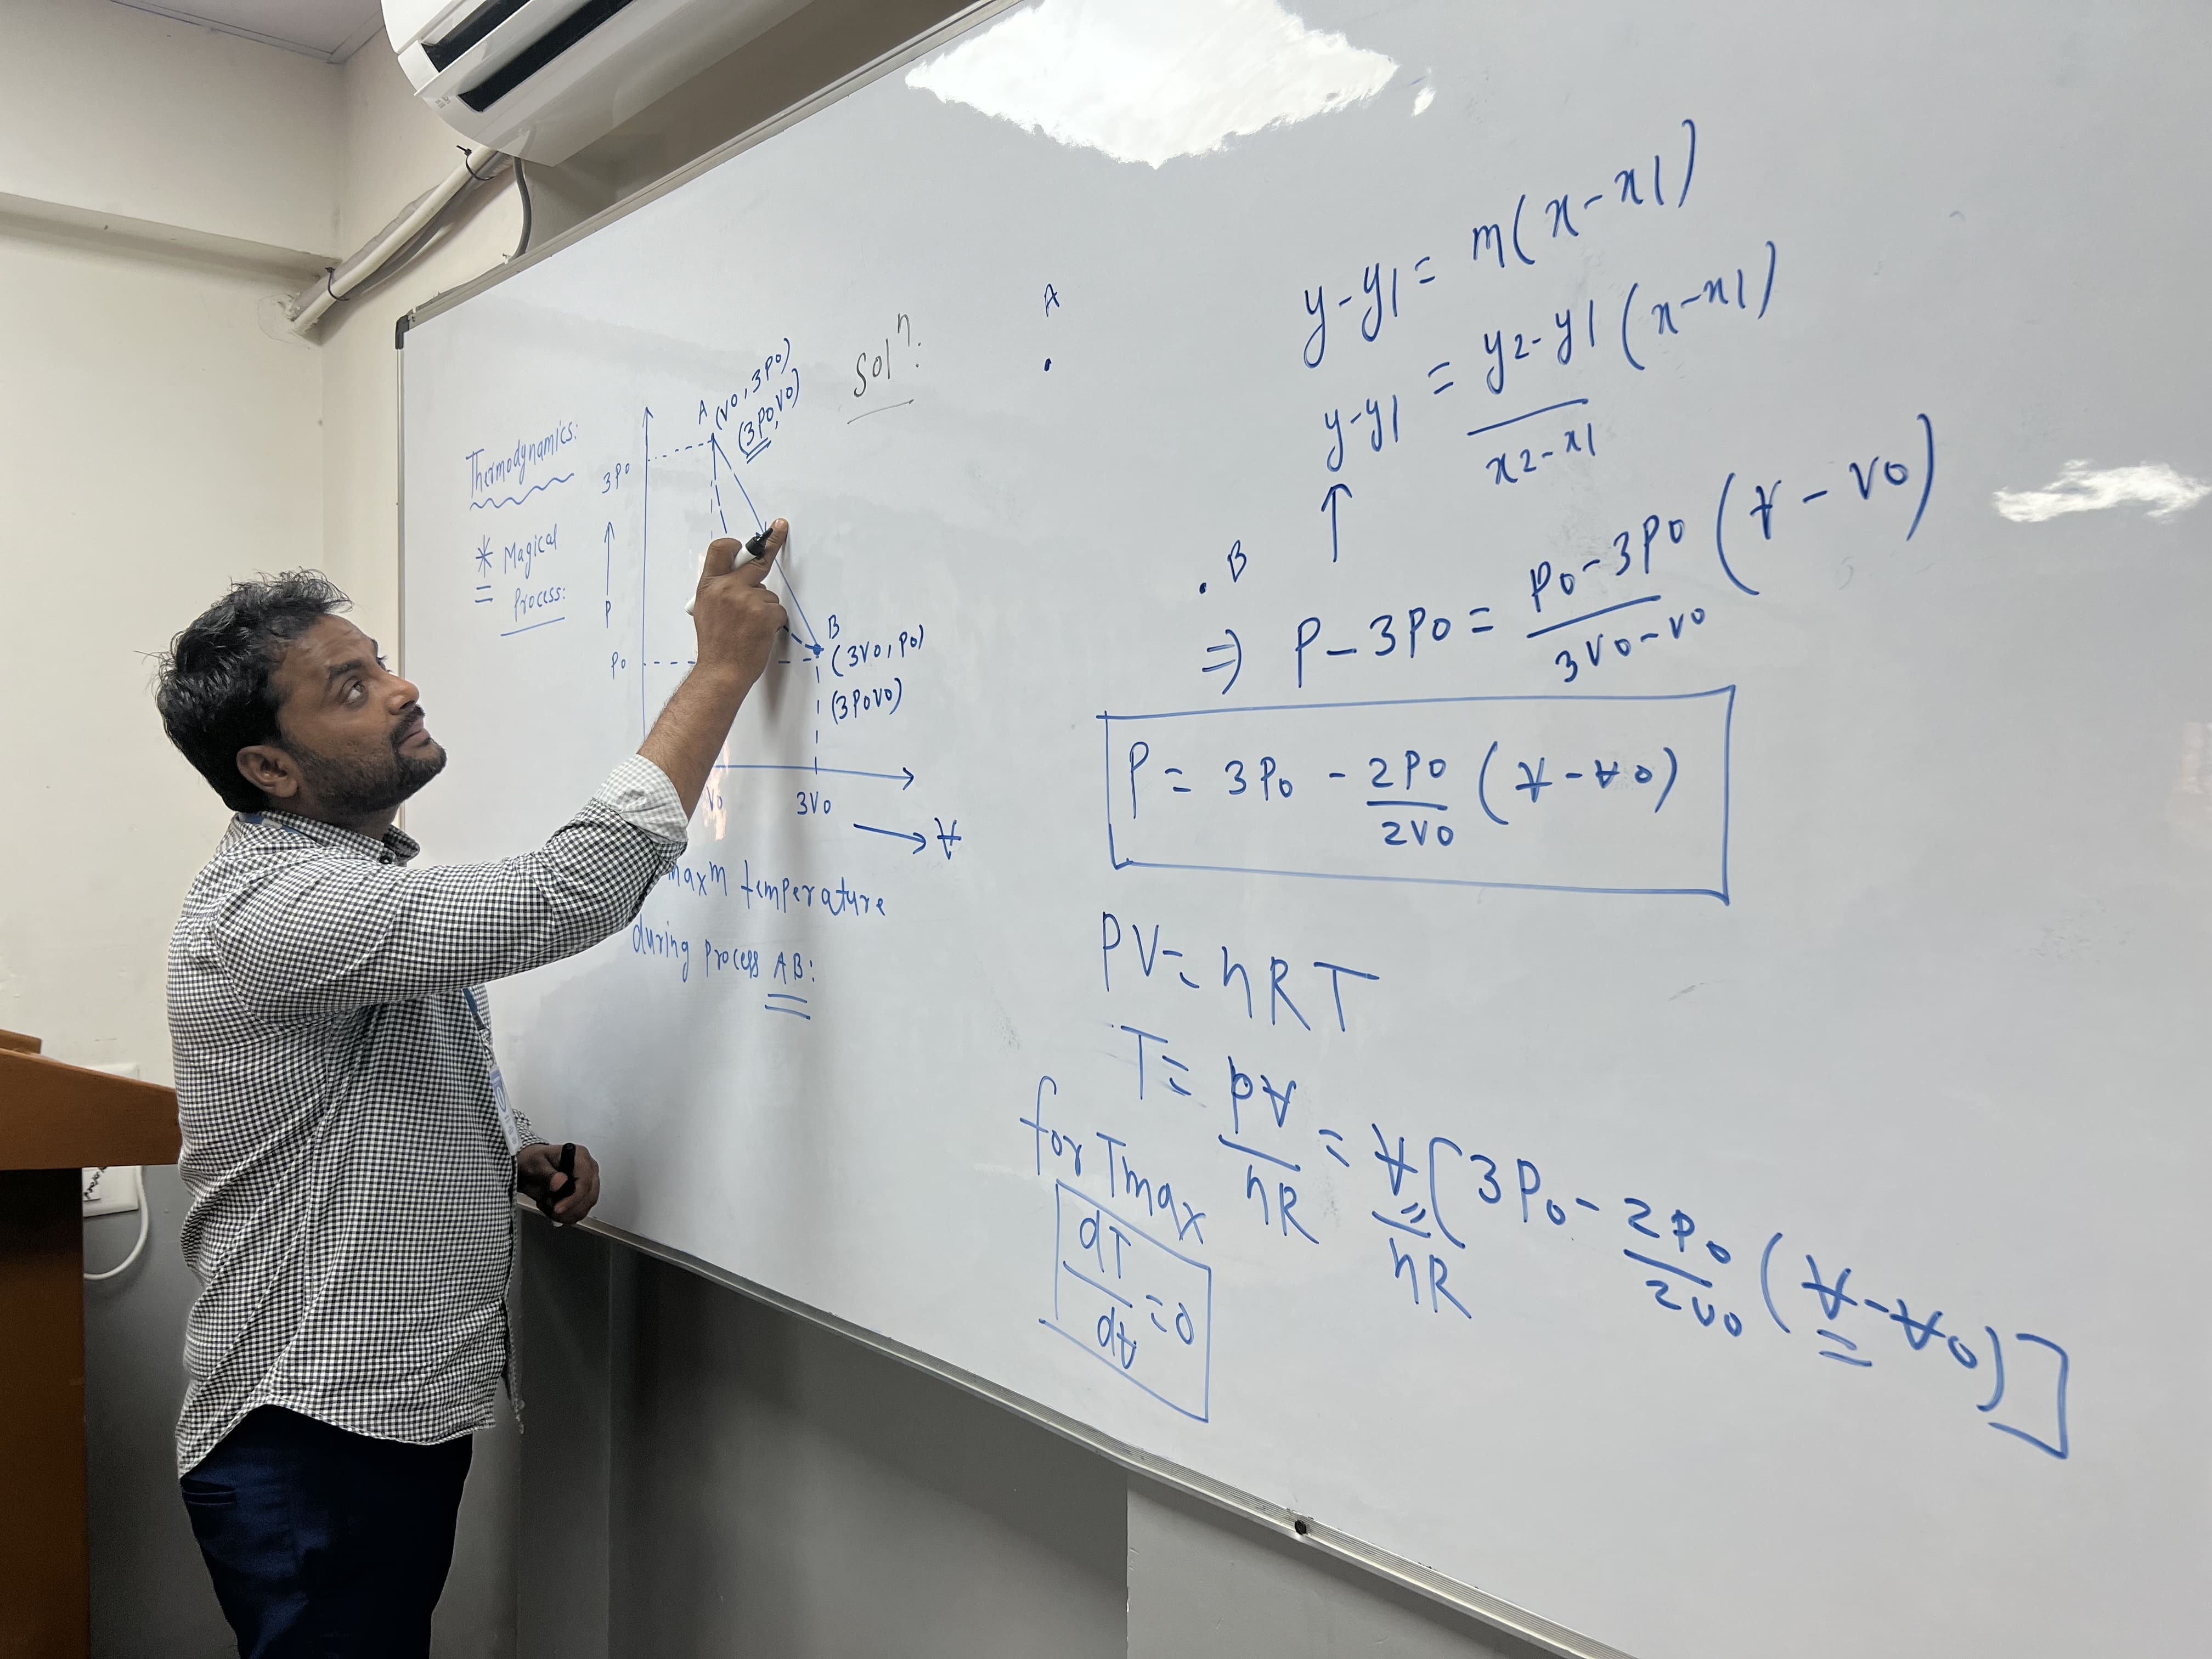 Thermodynamics:
* Magical
Process:
A (V0, 3P0)
(3P0, V0)
3P0
P
P0
B
(3V0, P0)
(3P0V0)
V0
3V0
V
maxm temperature
during process AB:
Solⁿ:
A
B
y-y1 = m(x-x1)
y-y1 = y2-y1/x2-x1 (x-x1)
⇒ P-3P0 = P0-3P0/3V0-V0 (V-V0)
P = 3P0 - 2P0/2V0 (V-V0)
PV = nRT
T = PV/nR = V/nR [3P0 - 2P0/2V0 (V-V0)]
for Tmax
dT/dV = 0